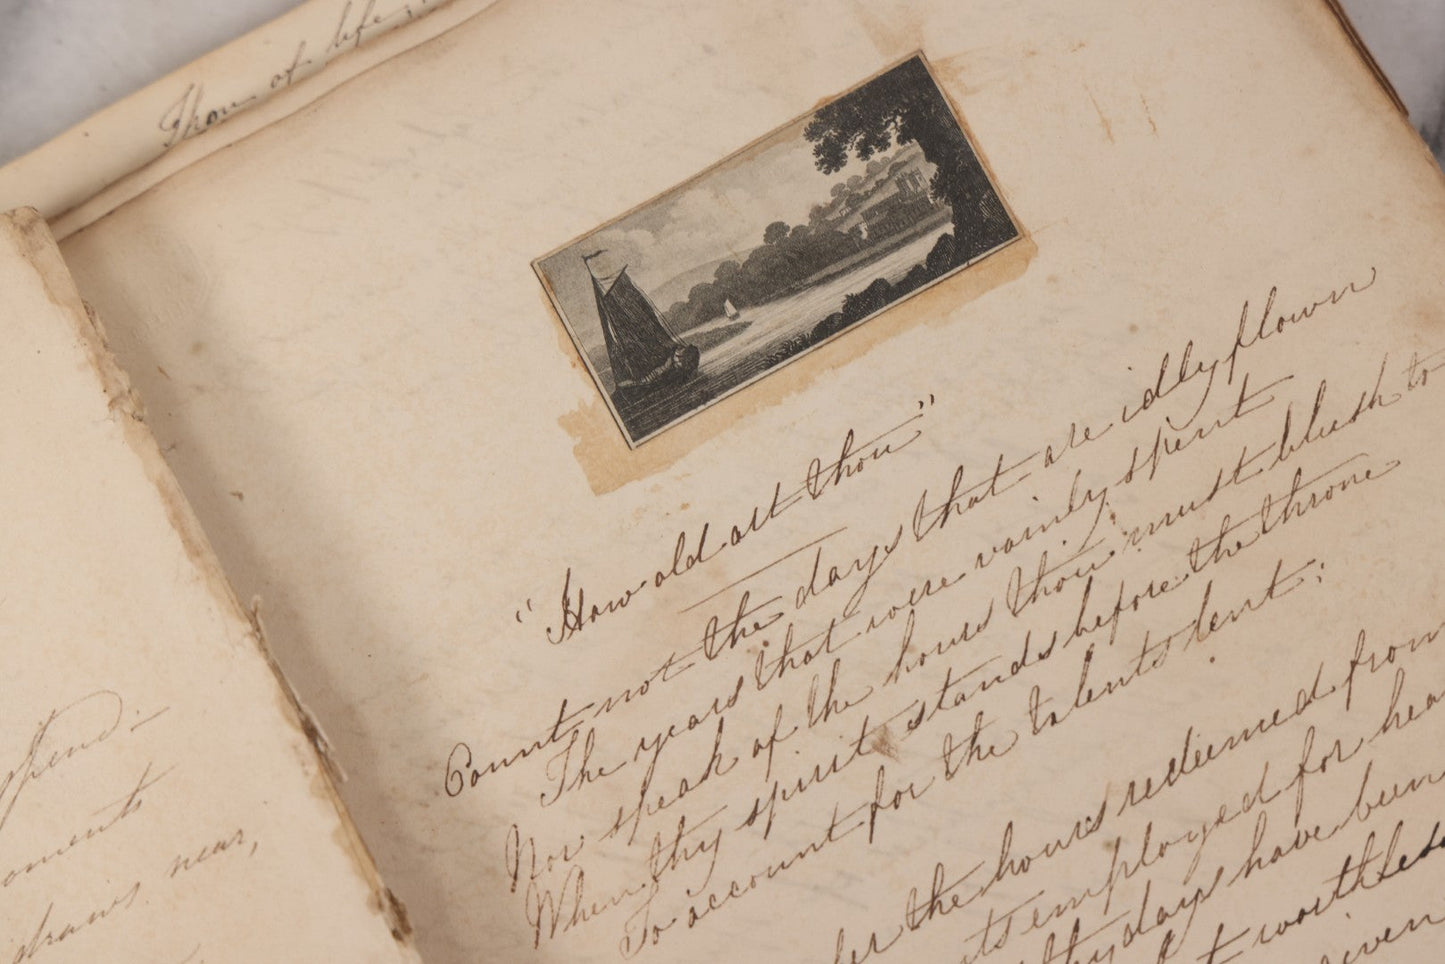 Thou of life,
"How old art thou"
Count not the days that are idly flown
The years that were vainly spent
Nor speak of the hours thou must blush to
When thy spirit stands before the throne
To account for the talents lent;
the hours redeemed from
employed for
days have been
worthless
spend-
near,